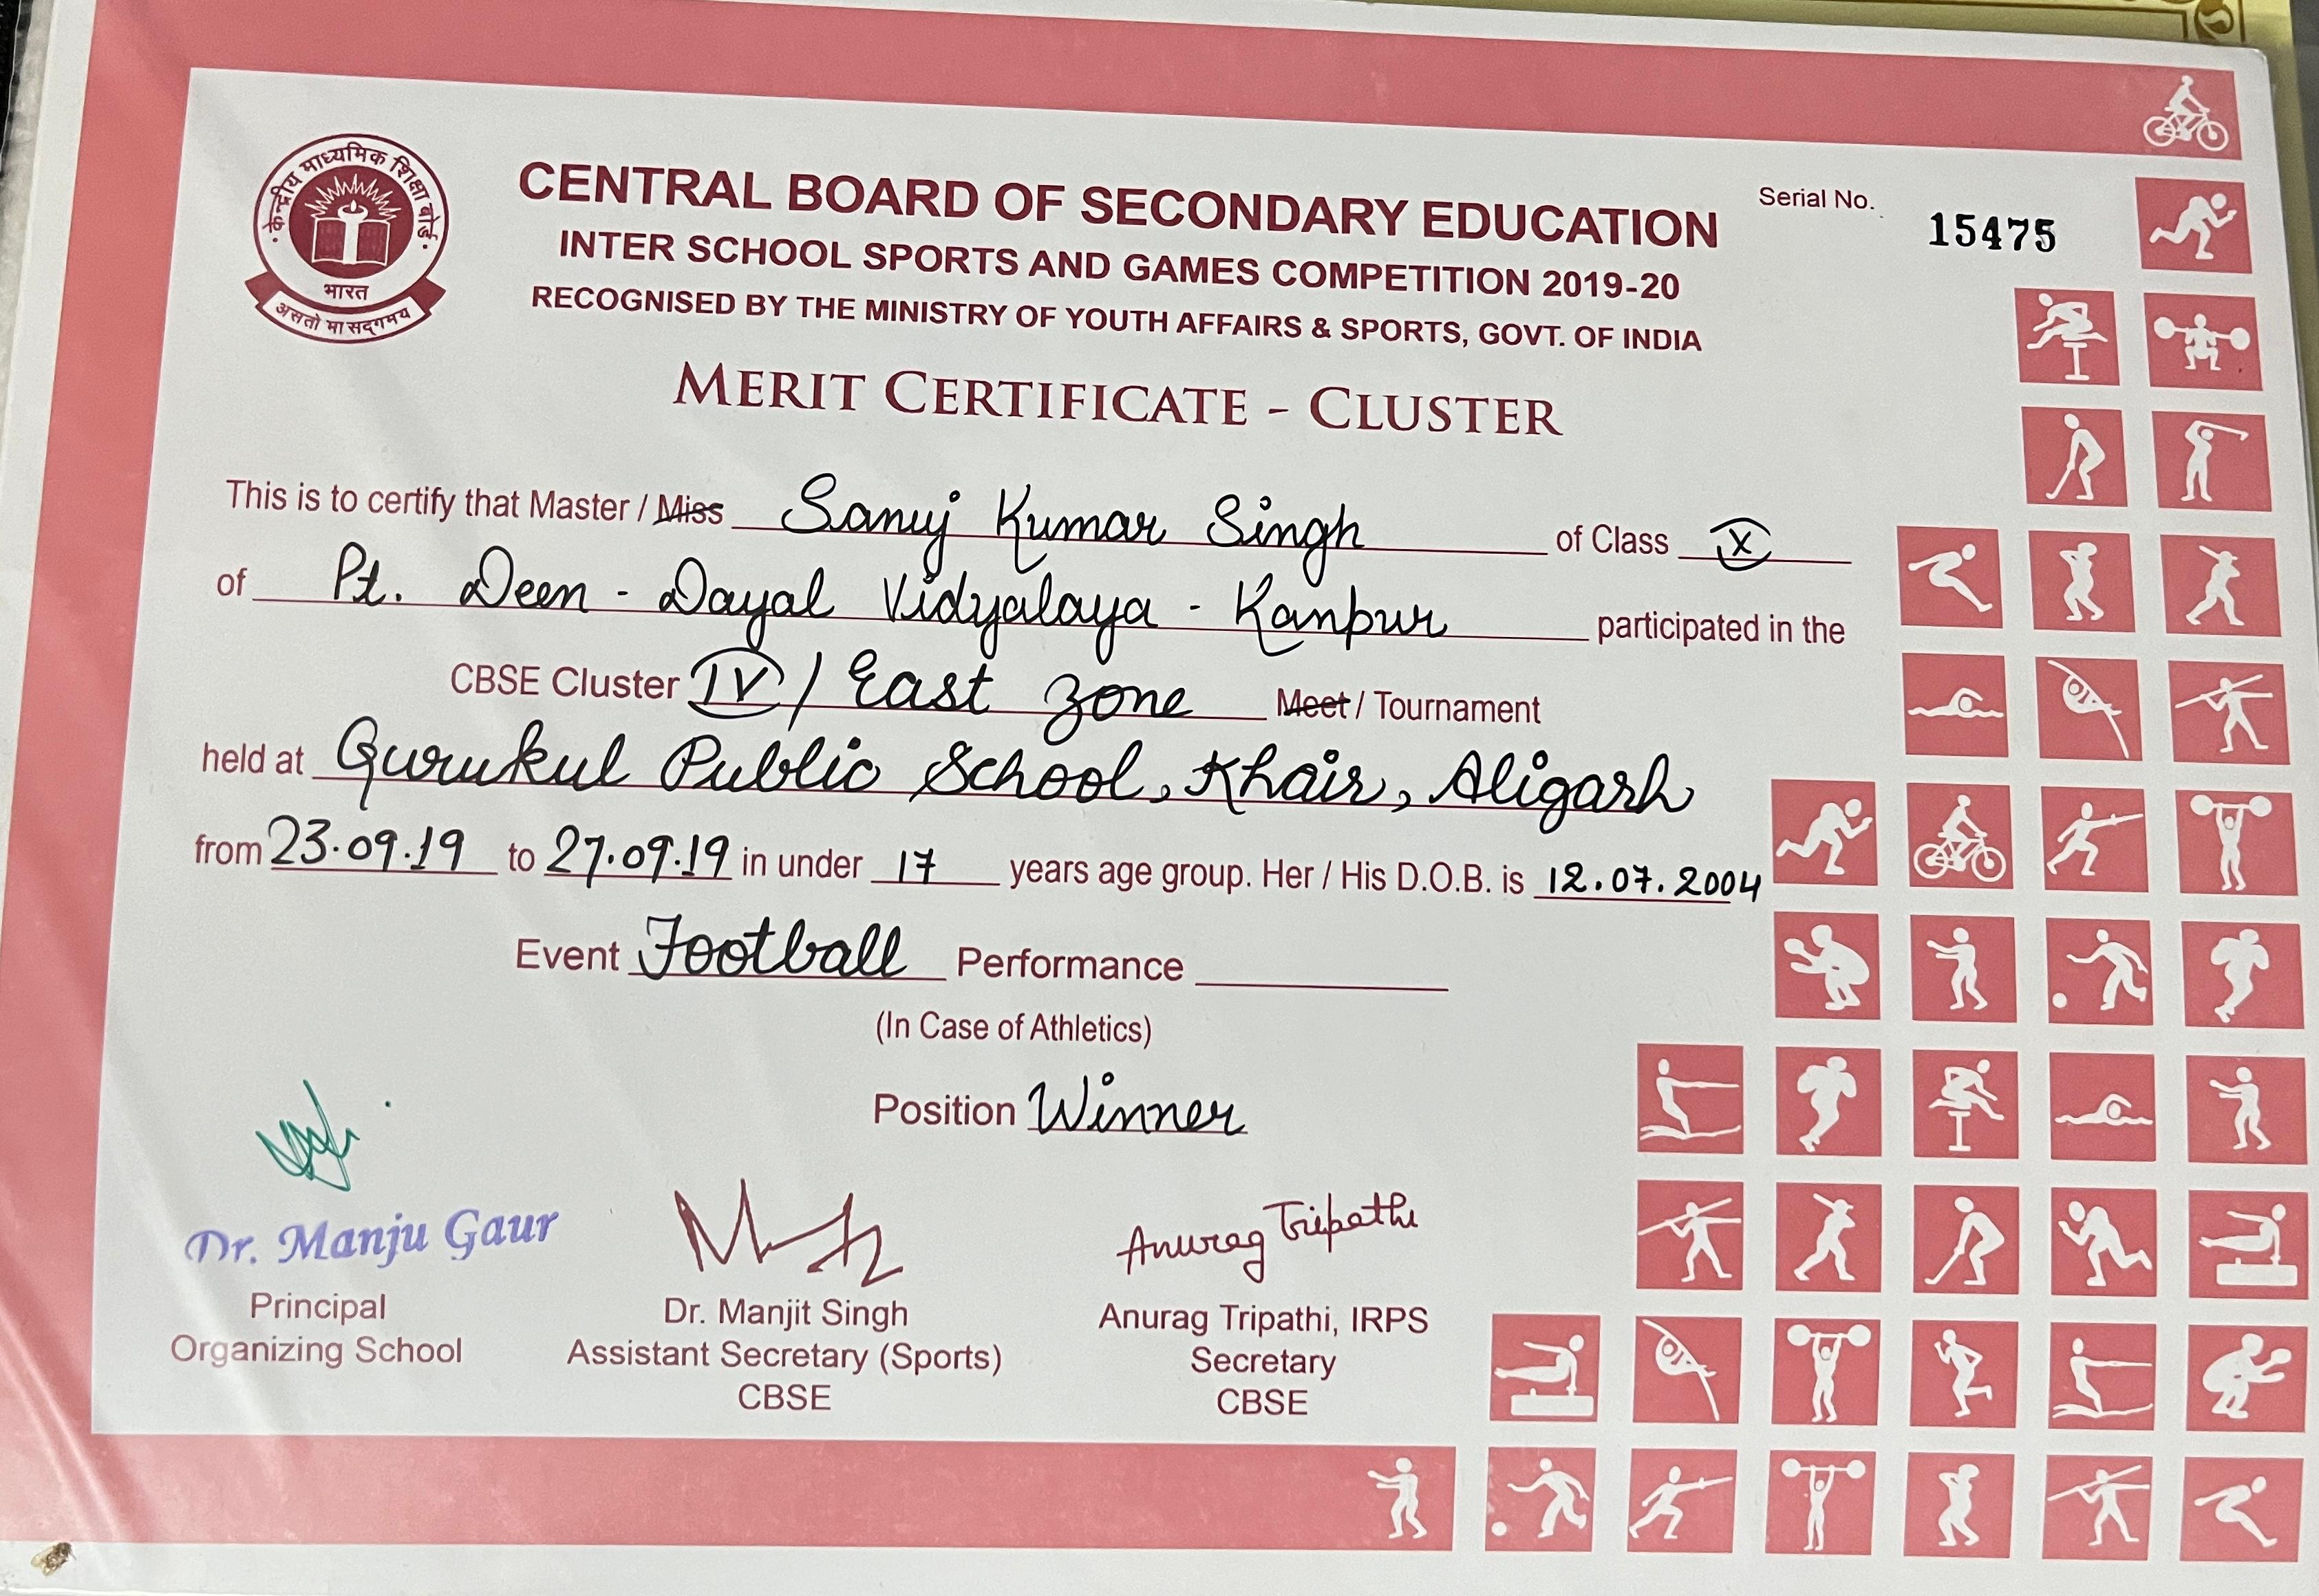 केन्द्रीय माध्यमिक शिक्षा बोर्ड
भारत
असतो मा सद्गमय
CENTRAL BOARD OF SECONDARY EDUCATION
Serial No. 15475
INTER SCHOOL SPORTS AND GAMES COMPETITION 2019-20
RECOGNISED BY THE MINISTRY OF YOUTH AFFAIRS & SPORTS, GOVT. OF INDIA
MERIT CERTIFICATE - CLUSTER
This is to certify that Master / Miss Sanuj Kumar Singh of Class X
of Pt. Deen - Dayal Vidyalaya - Kanpur participated in the
CBSE Cluster IV / East Zone Meet / Tournament
held at Gurukul Public School, Khair, Aligarh
from 23.09.19 to 27.09.19 in under 17 years age group. Her / His D.O.B. is 12.07.2004
Event Football Performance
(In Case of Athletics)
Position Winner
Anurag Tripathi
Dr. Manju Gaur
Principal
Organizing School
Dr. Manjit Singh
Assistant Secretary (Sports)
CBSE
Anurag Tripathi, IRPS
Secretary
CBSE